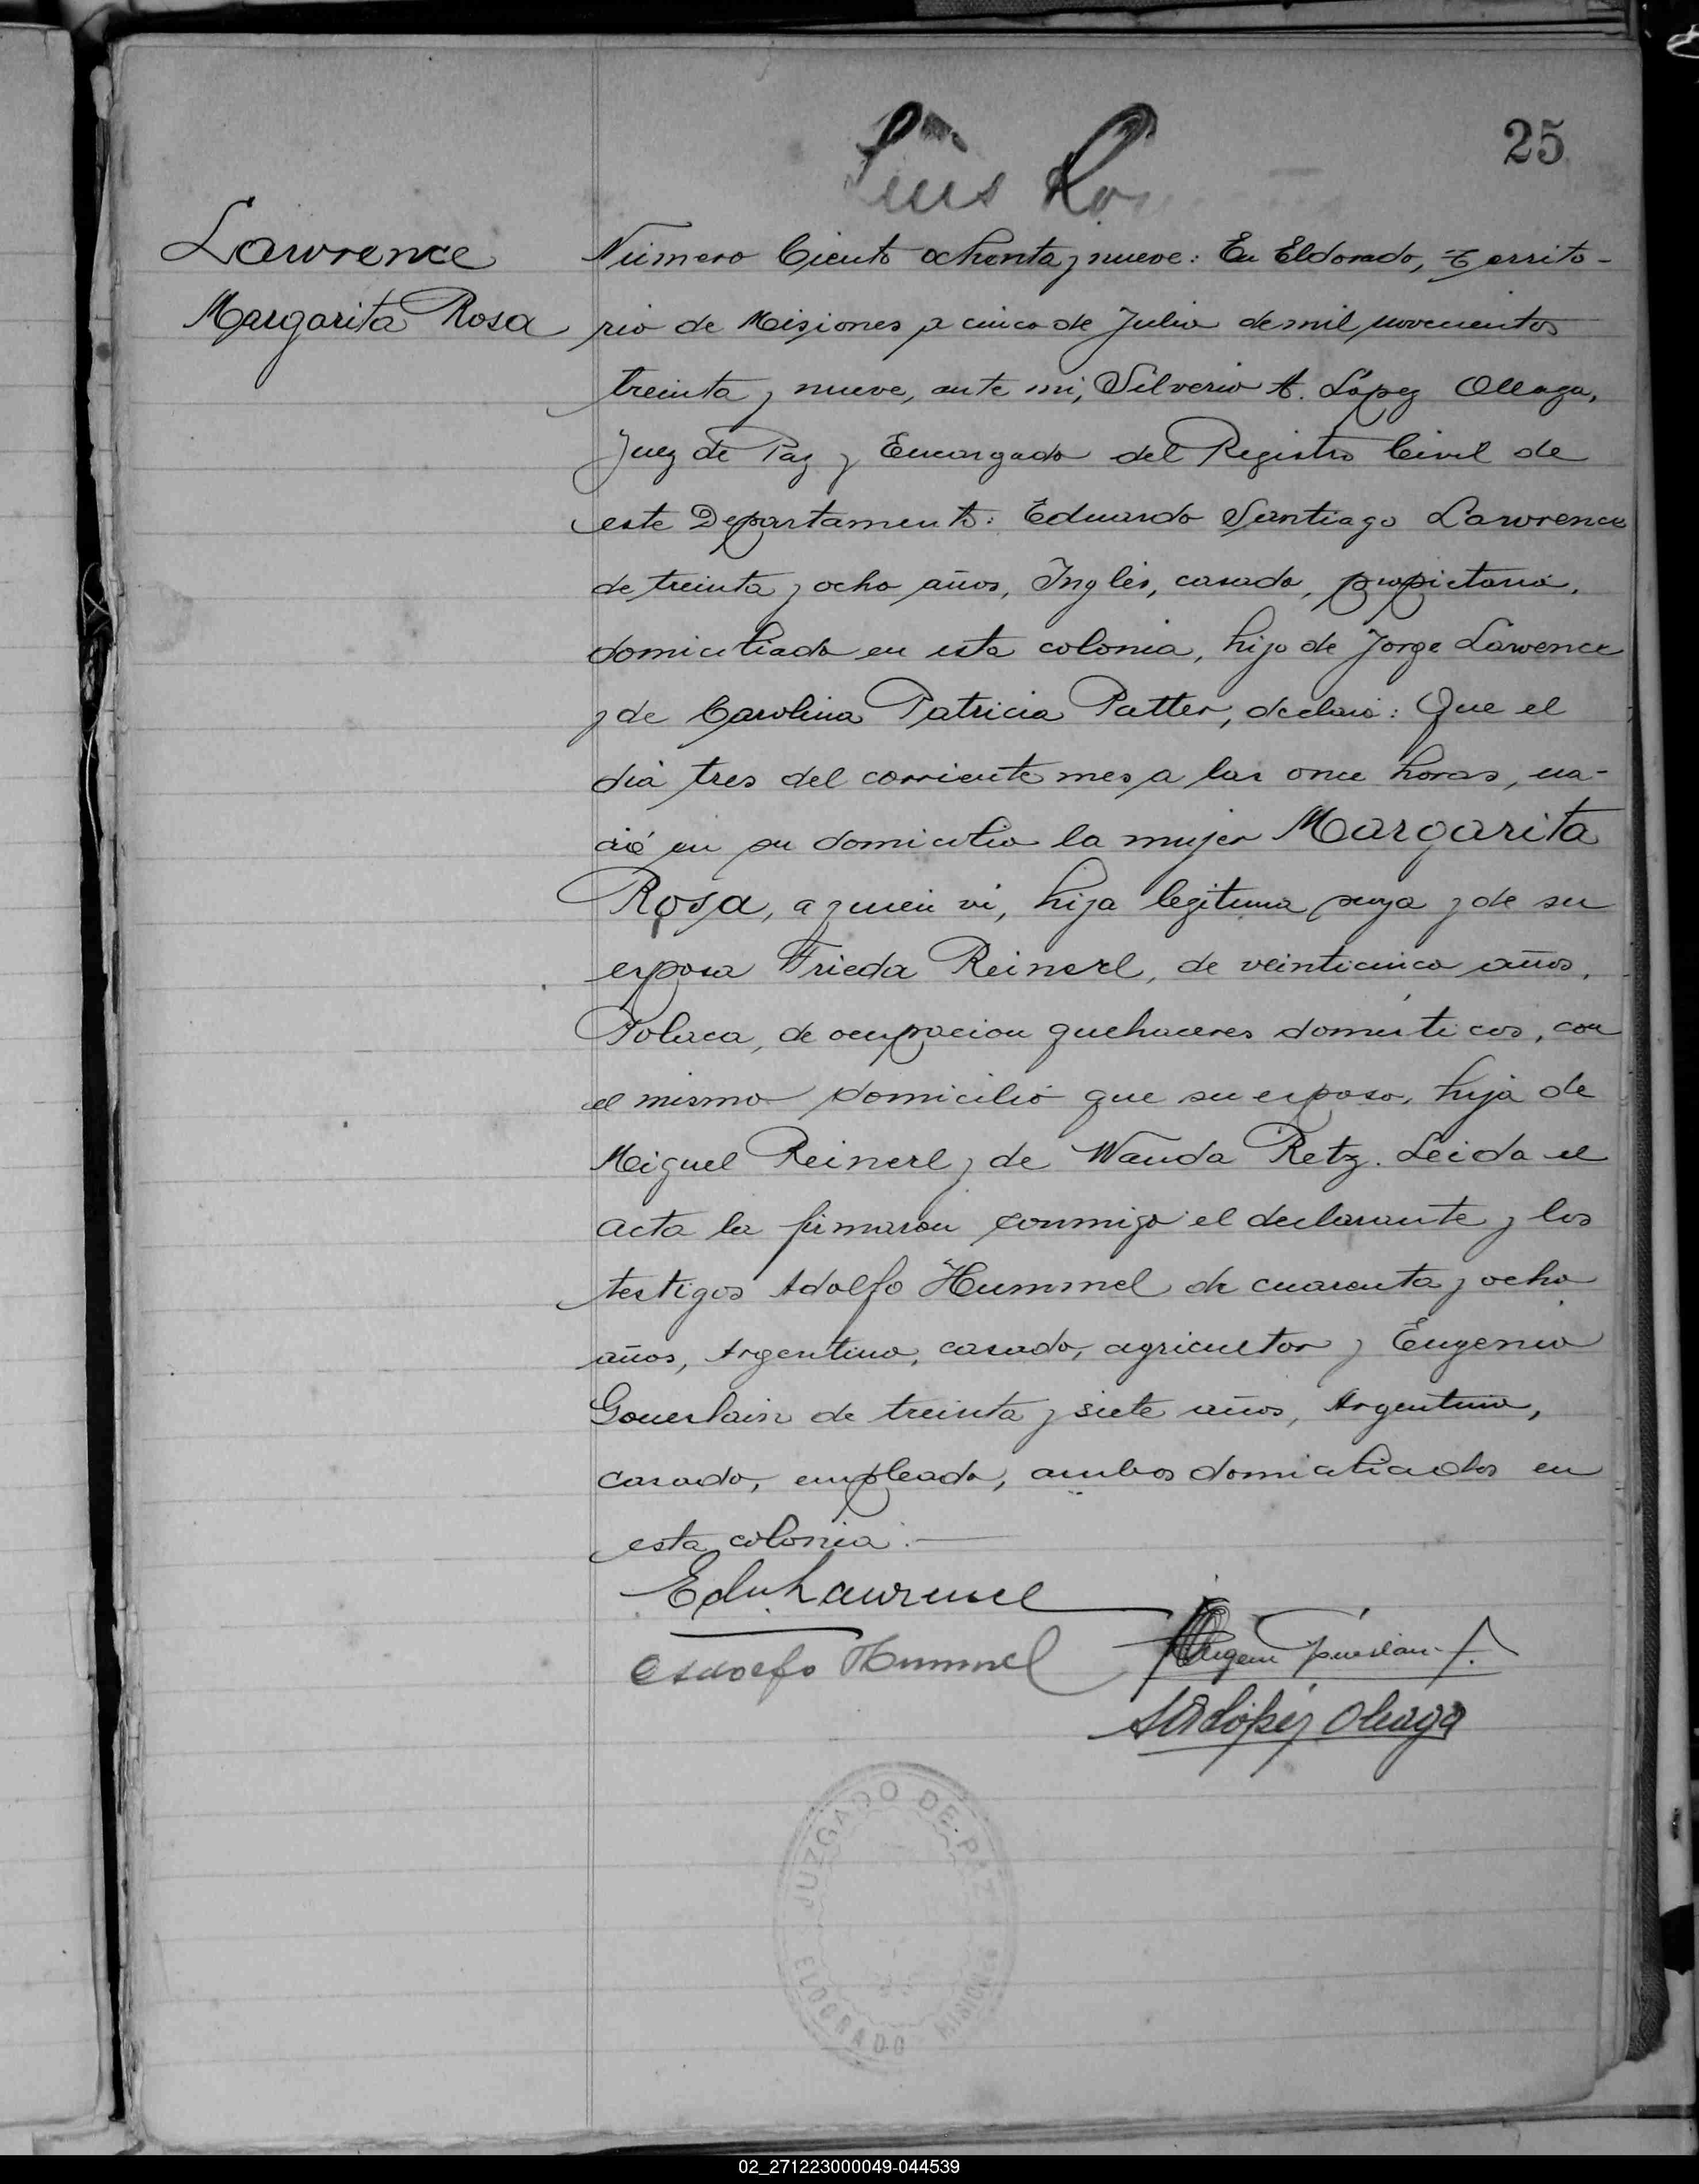 25
Luis Ro
Lawrence
Margarita Rosa
Número Ciento ochenta y nueve: En Eldorado, Territo-
rio de Misiones a cinco de Julio de mil novecientos
treinta y nueve, ante mi, Silverio A. López Olleaga,
Juez de Paz y Encargado del Registro Civil de
este Departamento: Eduardo Santiago Lawrence
de treinta y ocho años, Inglés, casado, propietario,
domiciliado en esta colonia, hijo de Jorge Lawence
y de Carolina Patricia Patter, declaró: Que el
dia tres del corriente mes a las once horas, na-
ció en su domicilio la mujer Margarita
Rosa, a quien vi, hija legitima suya y de su
esposa Frieda Reinerl, de veinticinco años,
Polaca, de ocupacion quehaceres domésticos, con
el mismo domicilio que su esposo, hija de
Miguel Reinerl y de Wanda Retz. Leida el
acta la firmaron conmigo el declarante y los
testigos Adolfo Hummel de cuarenta y ocho
años, Argentino, casado, agricultor y Eugenio
de treinta y siete años, Argentino,
casado, empleado, ambos domiciliados en
esta colonia.—
Edu Lawrence
Adolfo Hummel
López Oleaga
JUZGADO DE PAZ
ELDORADO MISIONES
02_271223000049-044539